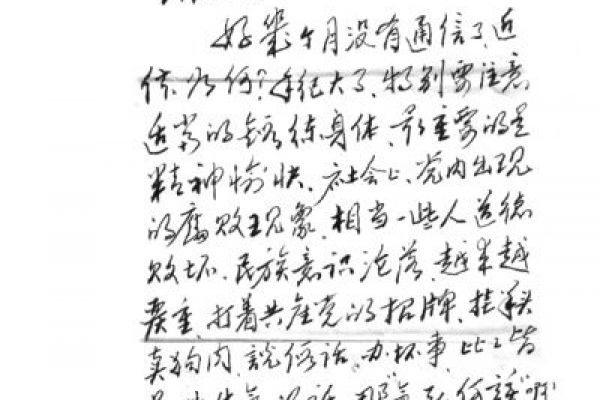 好几个月没有通信了.近
体如何?年纪大了、特别要注意
适当的锻练身体、最重要的是
精神愉快、社会上、党内出现
的腐败现象,相当一些人道德
败坏、民族意识沦落、越来越
严重,打着共产党的招牌,挂羊头
卖狗肉,説假话、办坏事,比比皆